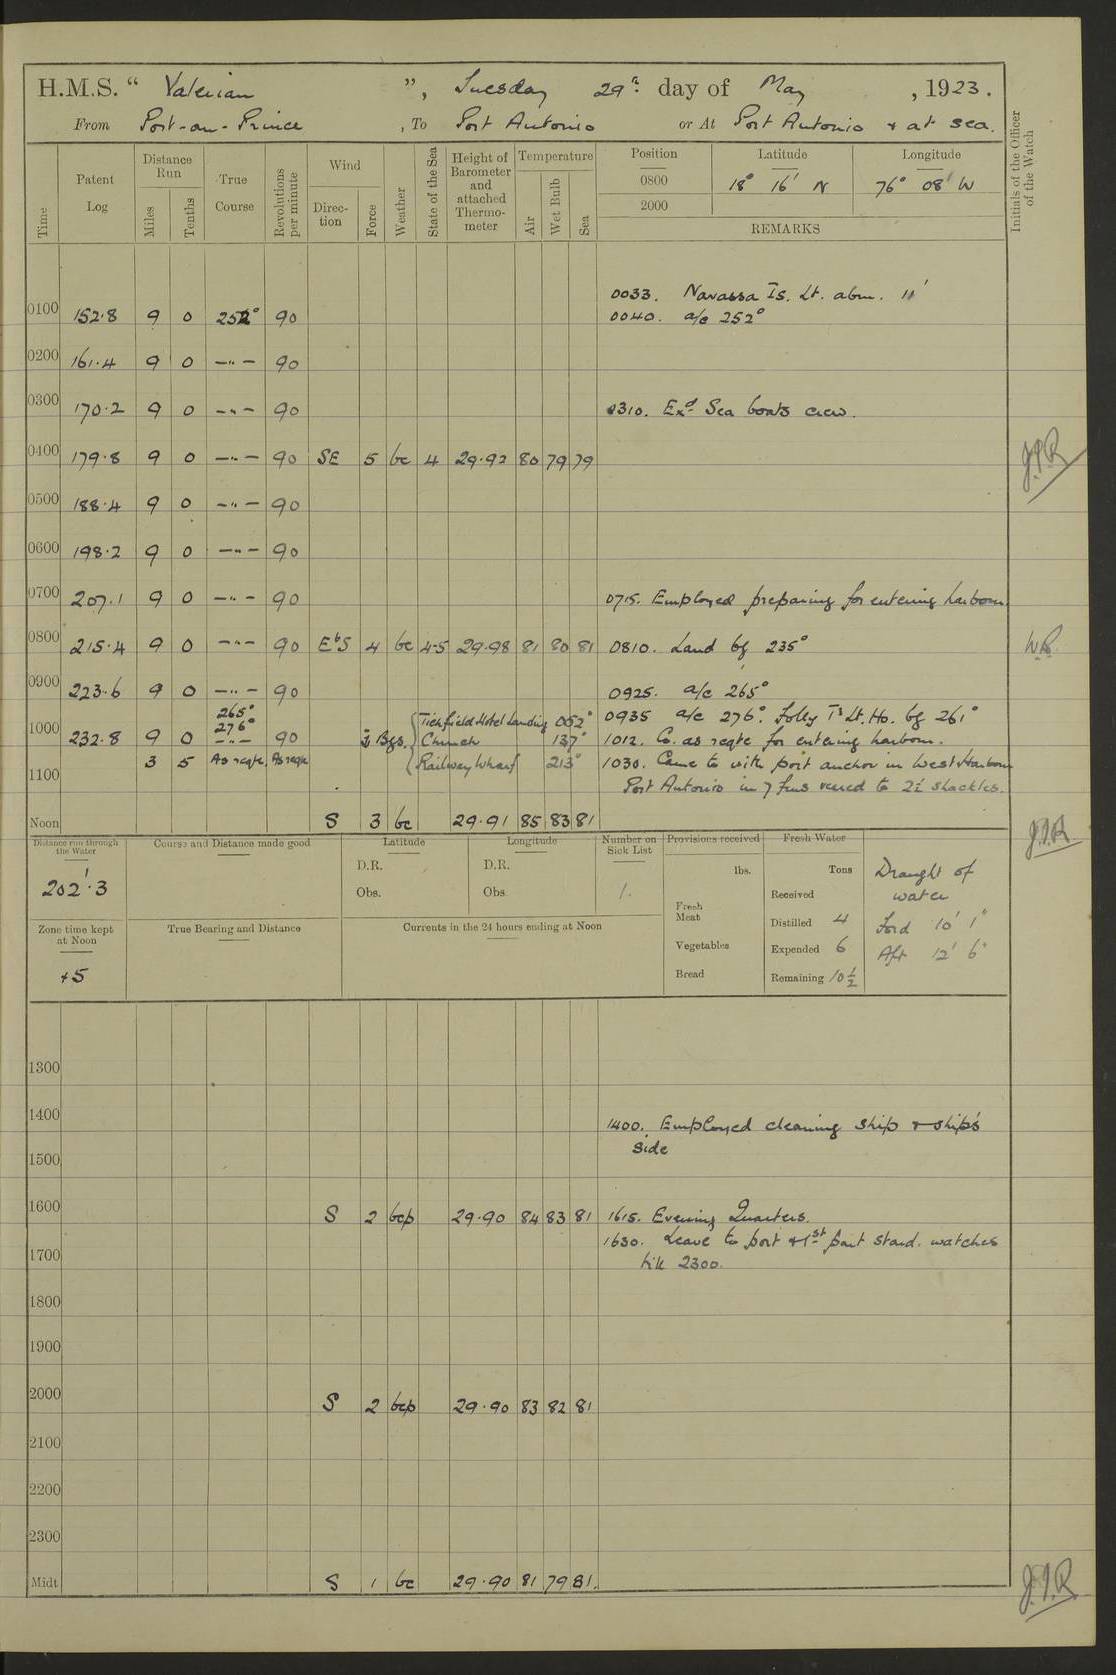 H.M.S. “ Valerian ”, Tuesday 29th day of May , 1923.
From Port-au-Prince , To Port Antonio or At Port Antonio & at sea.
Time
Patent Log
Distance Run
Miles
Tenths
True Course
Revolutions per minute
Wind
Direction
Force
Weather
State of the Sea
Height of Barometer and attached Thermometer
Temperature
Air
Wet Bulb
Sea
Position Latitude Longitude
0800 18° 16' N 76° 08' W
2000
REMARKS
Initials of the Officer of the Watch
0033. Navassa Is. Lt. abm. 11'
0100 152.8 9 0 252° 90 0040. a/c 252°
0200 161.4 9 0 —"— 90
0300 170.2 9 0 —"— 90 0310. Exd. Sea boats crew.
0400 179.8 9 0 —"— 90 SE 5 bc 4 29.92 80 79 79 J.I.R
0500 188.4 9 0 —"— 90
0600 198.2 9 0 —"— 90
0700 207.1 9 0 —"— 90 0715. Employed preparing for entering harbour.
0800 215.4 9 0 —"— 90 EbS 4 bc 4-5 29.98 81 80 81 0810. Land bg 235°
0900 223.6 9 0 —"— 90 0925. a/c 265°
265°
276° { Tichfield Hotel Landing 052° 0935 a/c 276°. Folly Pt Lt. Ho. bg 261°
1000 232.8 9 0 —"— 90 Bgs. Church 137° 1012. Co. as reqte for entering harbour.
3 5 As reqte As reqte Railway Wharf 213° 1030. Came to with port anchor in West Harbour
1100 Port Antonio in 7 fms veered to 2½ shackles.
Noon S 3 bc 29.91 85 83 81 J.I.R
Distance run through the Water
202'.3
Course and Distance made good
Latitude
D.R.
Obs.
Longitude
D.R.
Obs.
Number on Sick List
1.
Provisions received
lbs.
Fresh Meat
Vegetables
Bread
Fresh Water
Tons
Received
Distilled 4
Expended 6
Remaining 10½
Draught of water
Ford 10' 1"
Aft 12' 6"
Zone time kept at Noon
+5
True Bearing and Distance
Currents in the 24 hours ending at Noon
1300
1400 1400. Employed cleaning ship & ship's
side
1500
1600 S 2 bcp 29.90 84 83 81 1615. Evening Quarters.
1630. Leave to port & 1st part stard. watches
1700 till 2300.
1800
1900
2000 S 2 bcp 29.90 83 82 81
2100
2200
2300
Midt S 1 bc 29.90 81 79 81. J.I.R